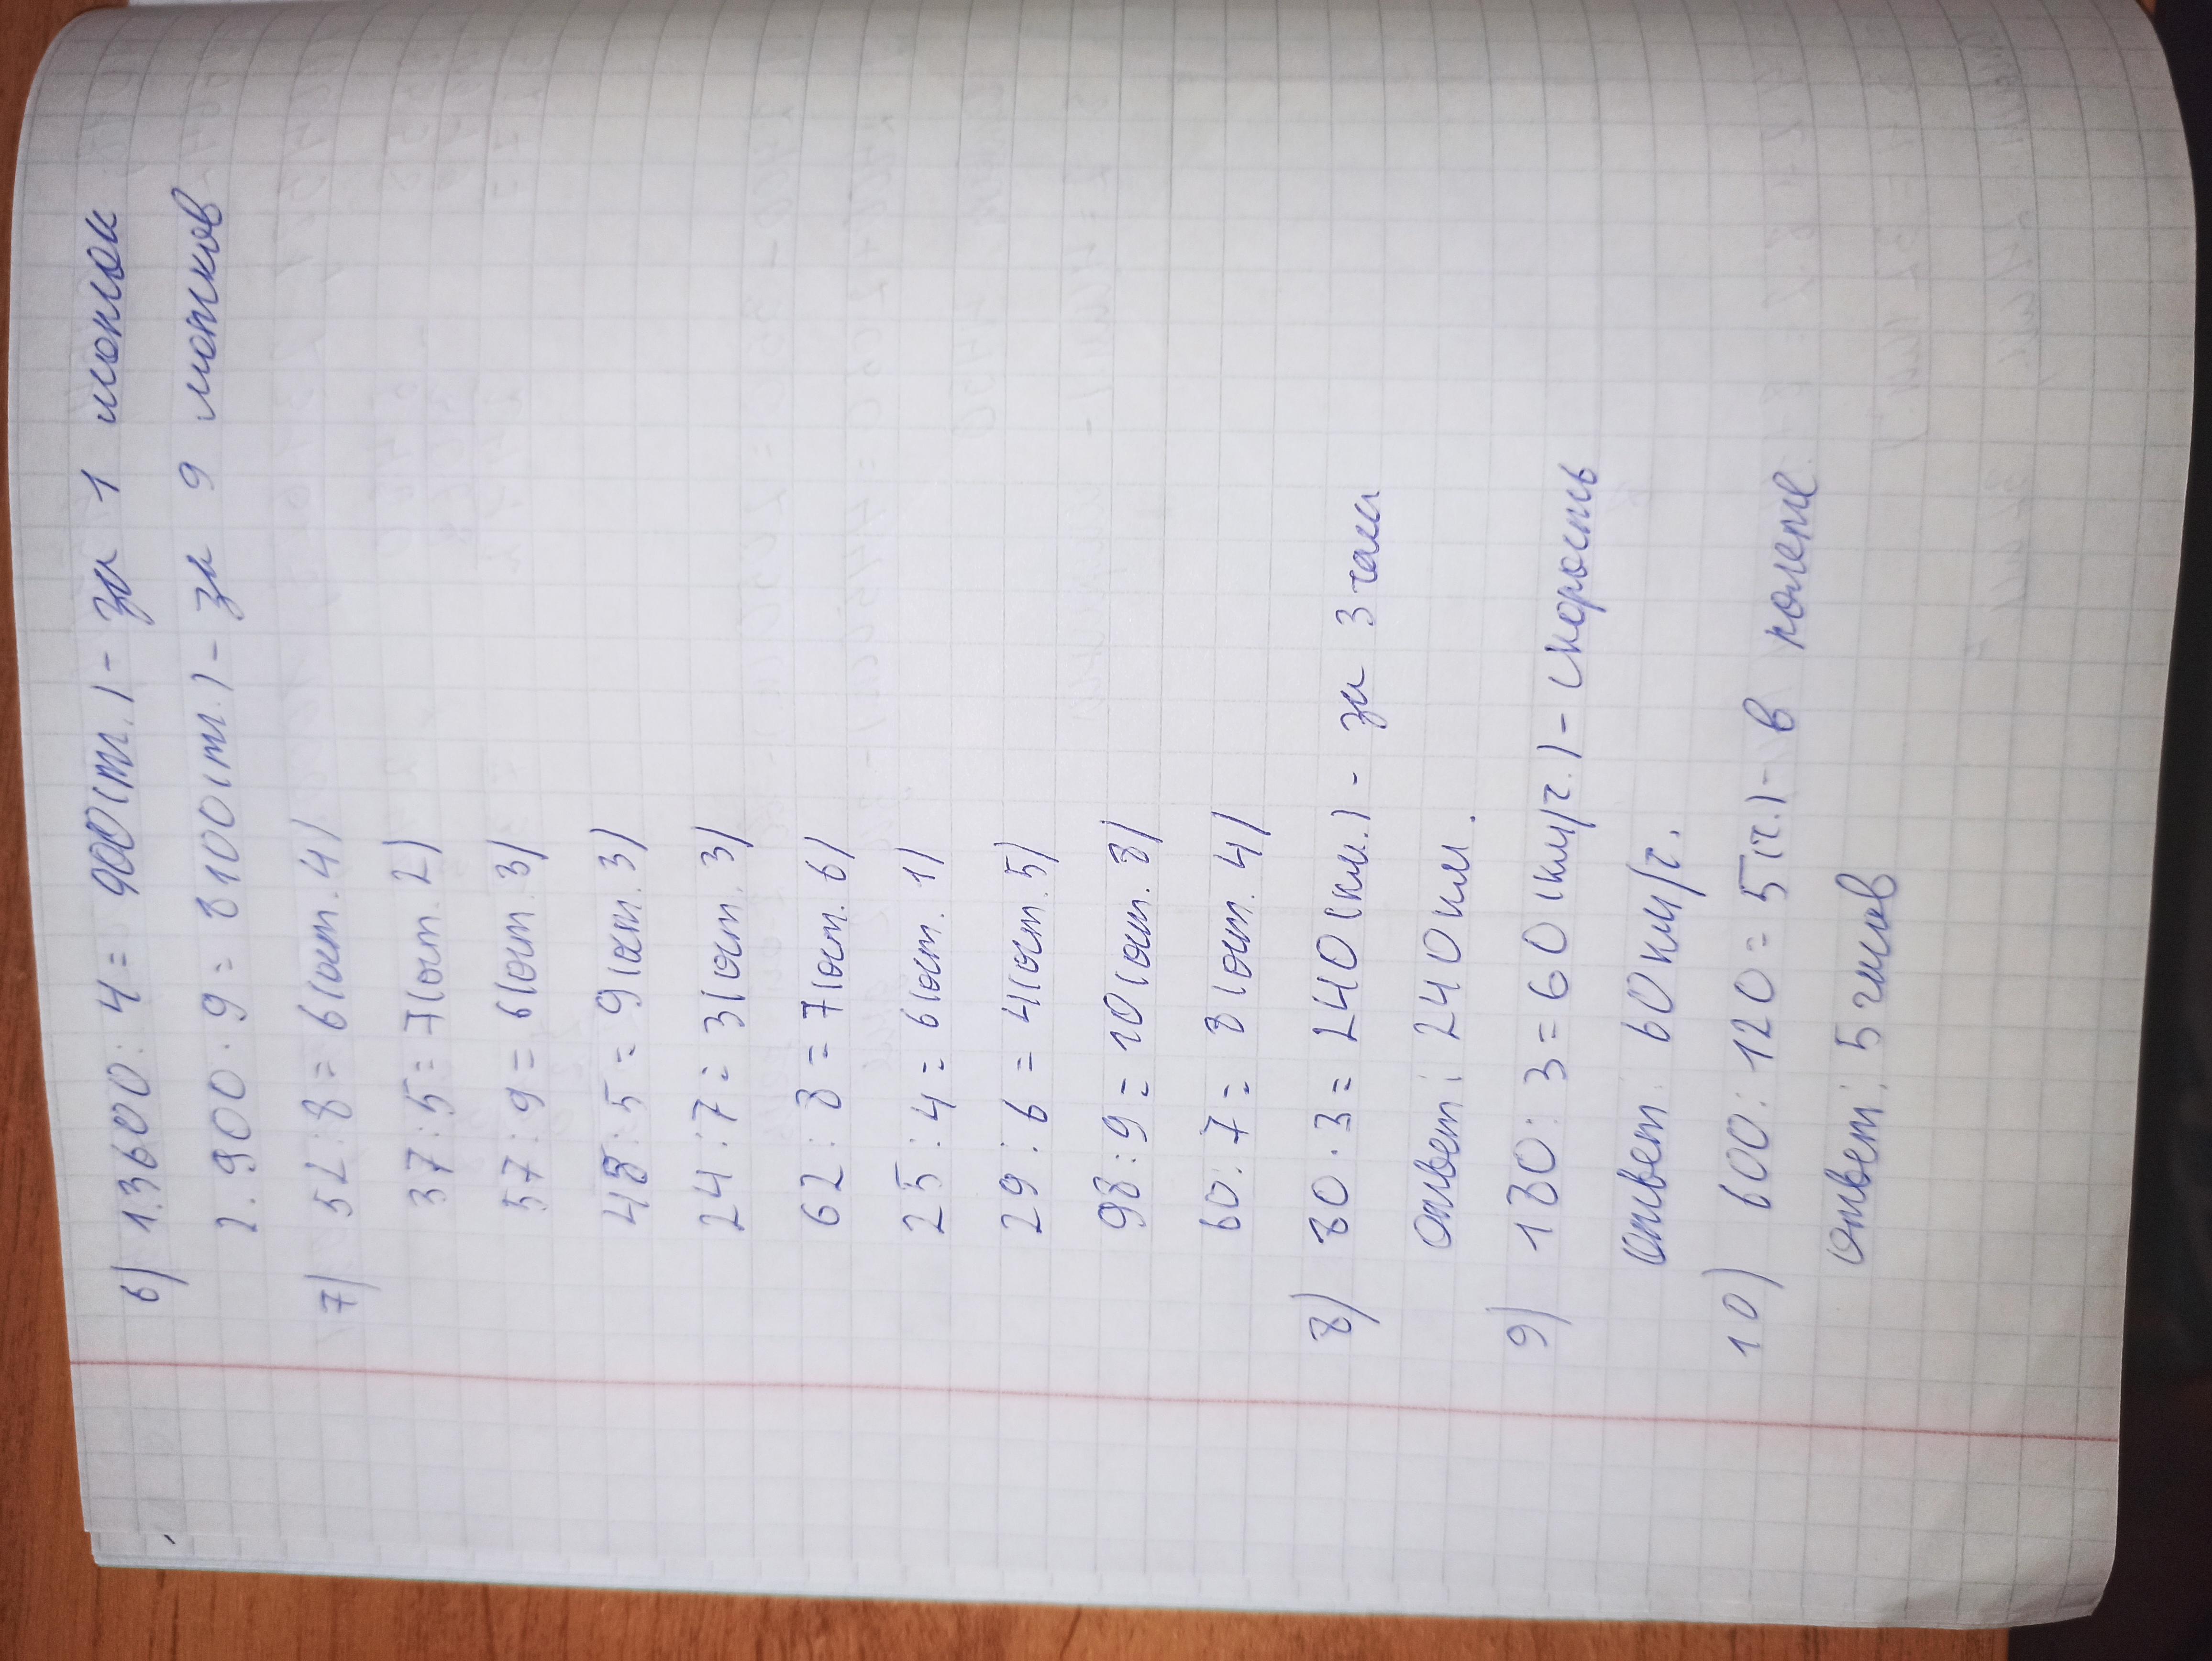 6) 1. 3600 : 4 = 900 (т.) - за 1 моток
2. 900 · 9 = 8100 (т.) - за 9 мотков
7) 52 : 8 = 6 (ост. 4)
37 : 5 = 7 (ост. 2)
57 : 9 = 6 (ост. 3)
48 : 5 = 9 (ост. 3)
24 : 7 = 3 (ост. 3)
62 : 8 = 7 (ост. 6)
25 : 4 = 6 (ост. 1)
29 : 6 = 4 (ост. 5)
98 : 9 = 10 (ост. 8)
60 : 7 = 8 (ост. 4)
8) 80 · 3 = 240 (км.) - за 3 часа
Ответ: 240 км.
9) 180 : 3 = 60 (км/ч.) - скорость
Ответ: 60 км/ч.
10) 600 : 120 = 5 (ч.) - в полёте
Ответ: 5 часов